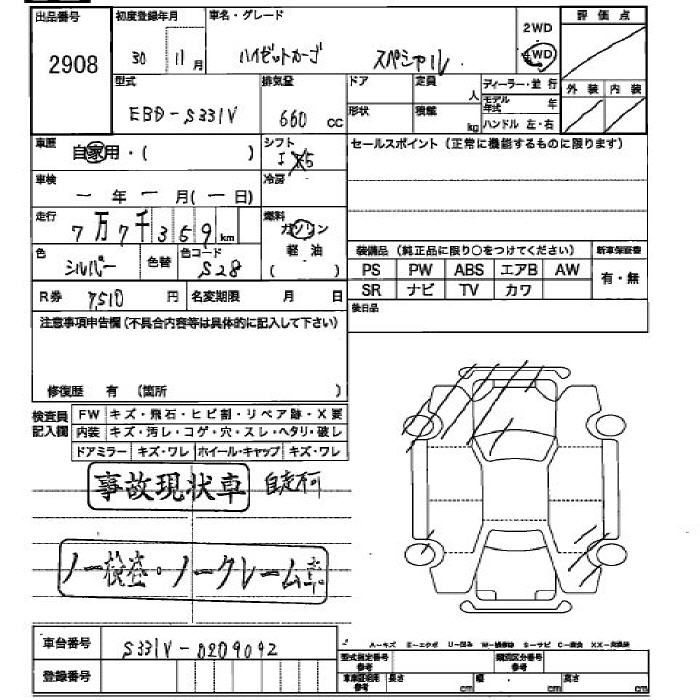 出品番号 初度登録年月 車名・グレード 2WD 評価点
2908 30 11月 ハイゼットカーゴ スペシャル 4WD
型式 排気量 ドア 定員 人 ディーラー・並行 外装 内装
EBD-S331V 660 cc 形状 積載 kg モデル年式 年
ハンドル 左・右
車歴 自家用・( ) シフト セールスポイント(正常に機能するものに限ります)
車検 ー年ー月(ー日) 冷房
走行 7万7千359km 燃料 ガソリン
軽油
色 シルバー 色替 色コード S28
装備品(純正品に限り○をつけてください) 新車保証書
PS PW ABS エアB AW 有・無
SR ナビ TV カワ
R券 7510円 名変期限 月 日
後日品
注意事項申告欄(不具合内容等は具体的に記入して下さい)
修復歴 有 (箇所 )
検査員記入欄 FW キズ・飛石・ヒビ割・リペア跡・X要
内装 キズ・汚レ・コゲ・穴・スレ・ヘタリ・破レ
ドアミラー キズ・ワレ ホイール・キャップ キズ・ワレ
事故現状車 自走不可
ノー検査・ノークレーム
車台番号 S331V-0209092
A—キズ E—エクボ U—凹み S—サビ C—腐食
登録番号
型式指定番号 参考 類別区分番号 参考
車車証明用 参考 長さ cm 幅 cm 高さ cm